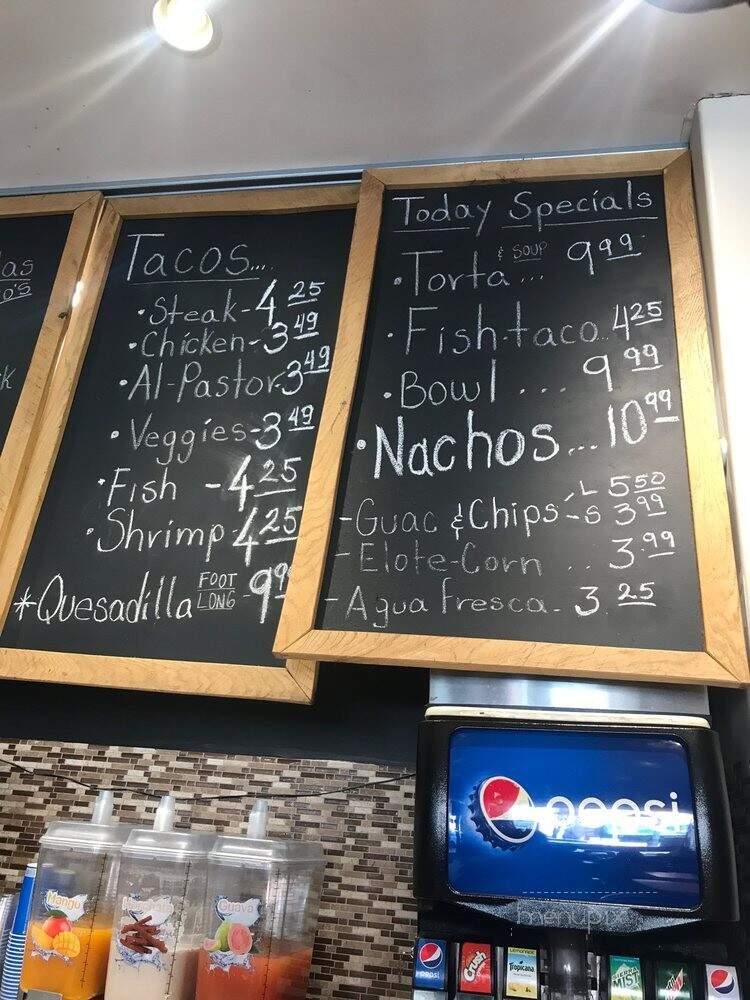 Tacos...
• Steak - 4 25
• Chicken - 3 49
• Al-Pastor 3 49
• Veggies - 3 49
• Fish - 4 25
• Shrimp - 4 25
* Quesadilla FOOT LONG - 9 99
Today Specials
• Torta & SOUP ... 9 99
• Fish-taco.. 4 25
• Bowl ... 9 99
• Nachos... 10 99
- Guac & Chips - L 5 50
- S 3 99
- Elote-Corn .. 3.99
- Agua fresca - 3.25
las
pepsi
Mango
Guava
menupix
pepsi
Crush
LEMONADE
Tropicana
SIERRA
MIST